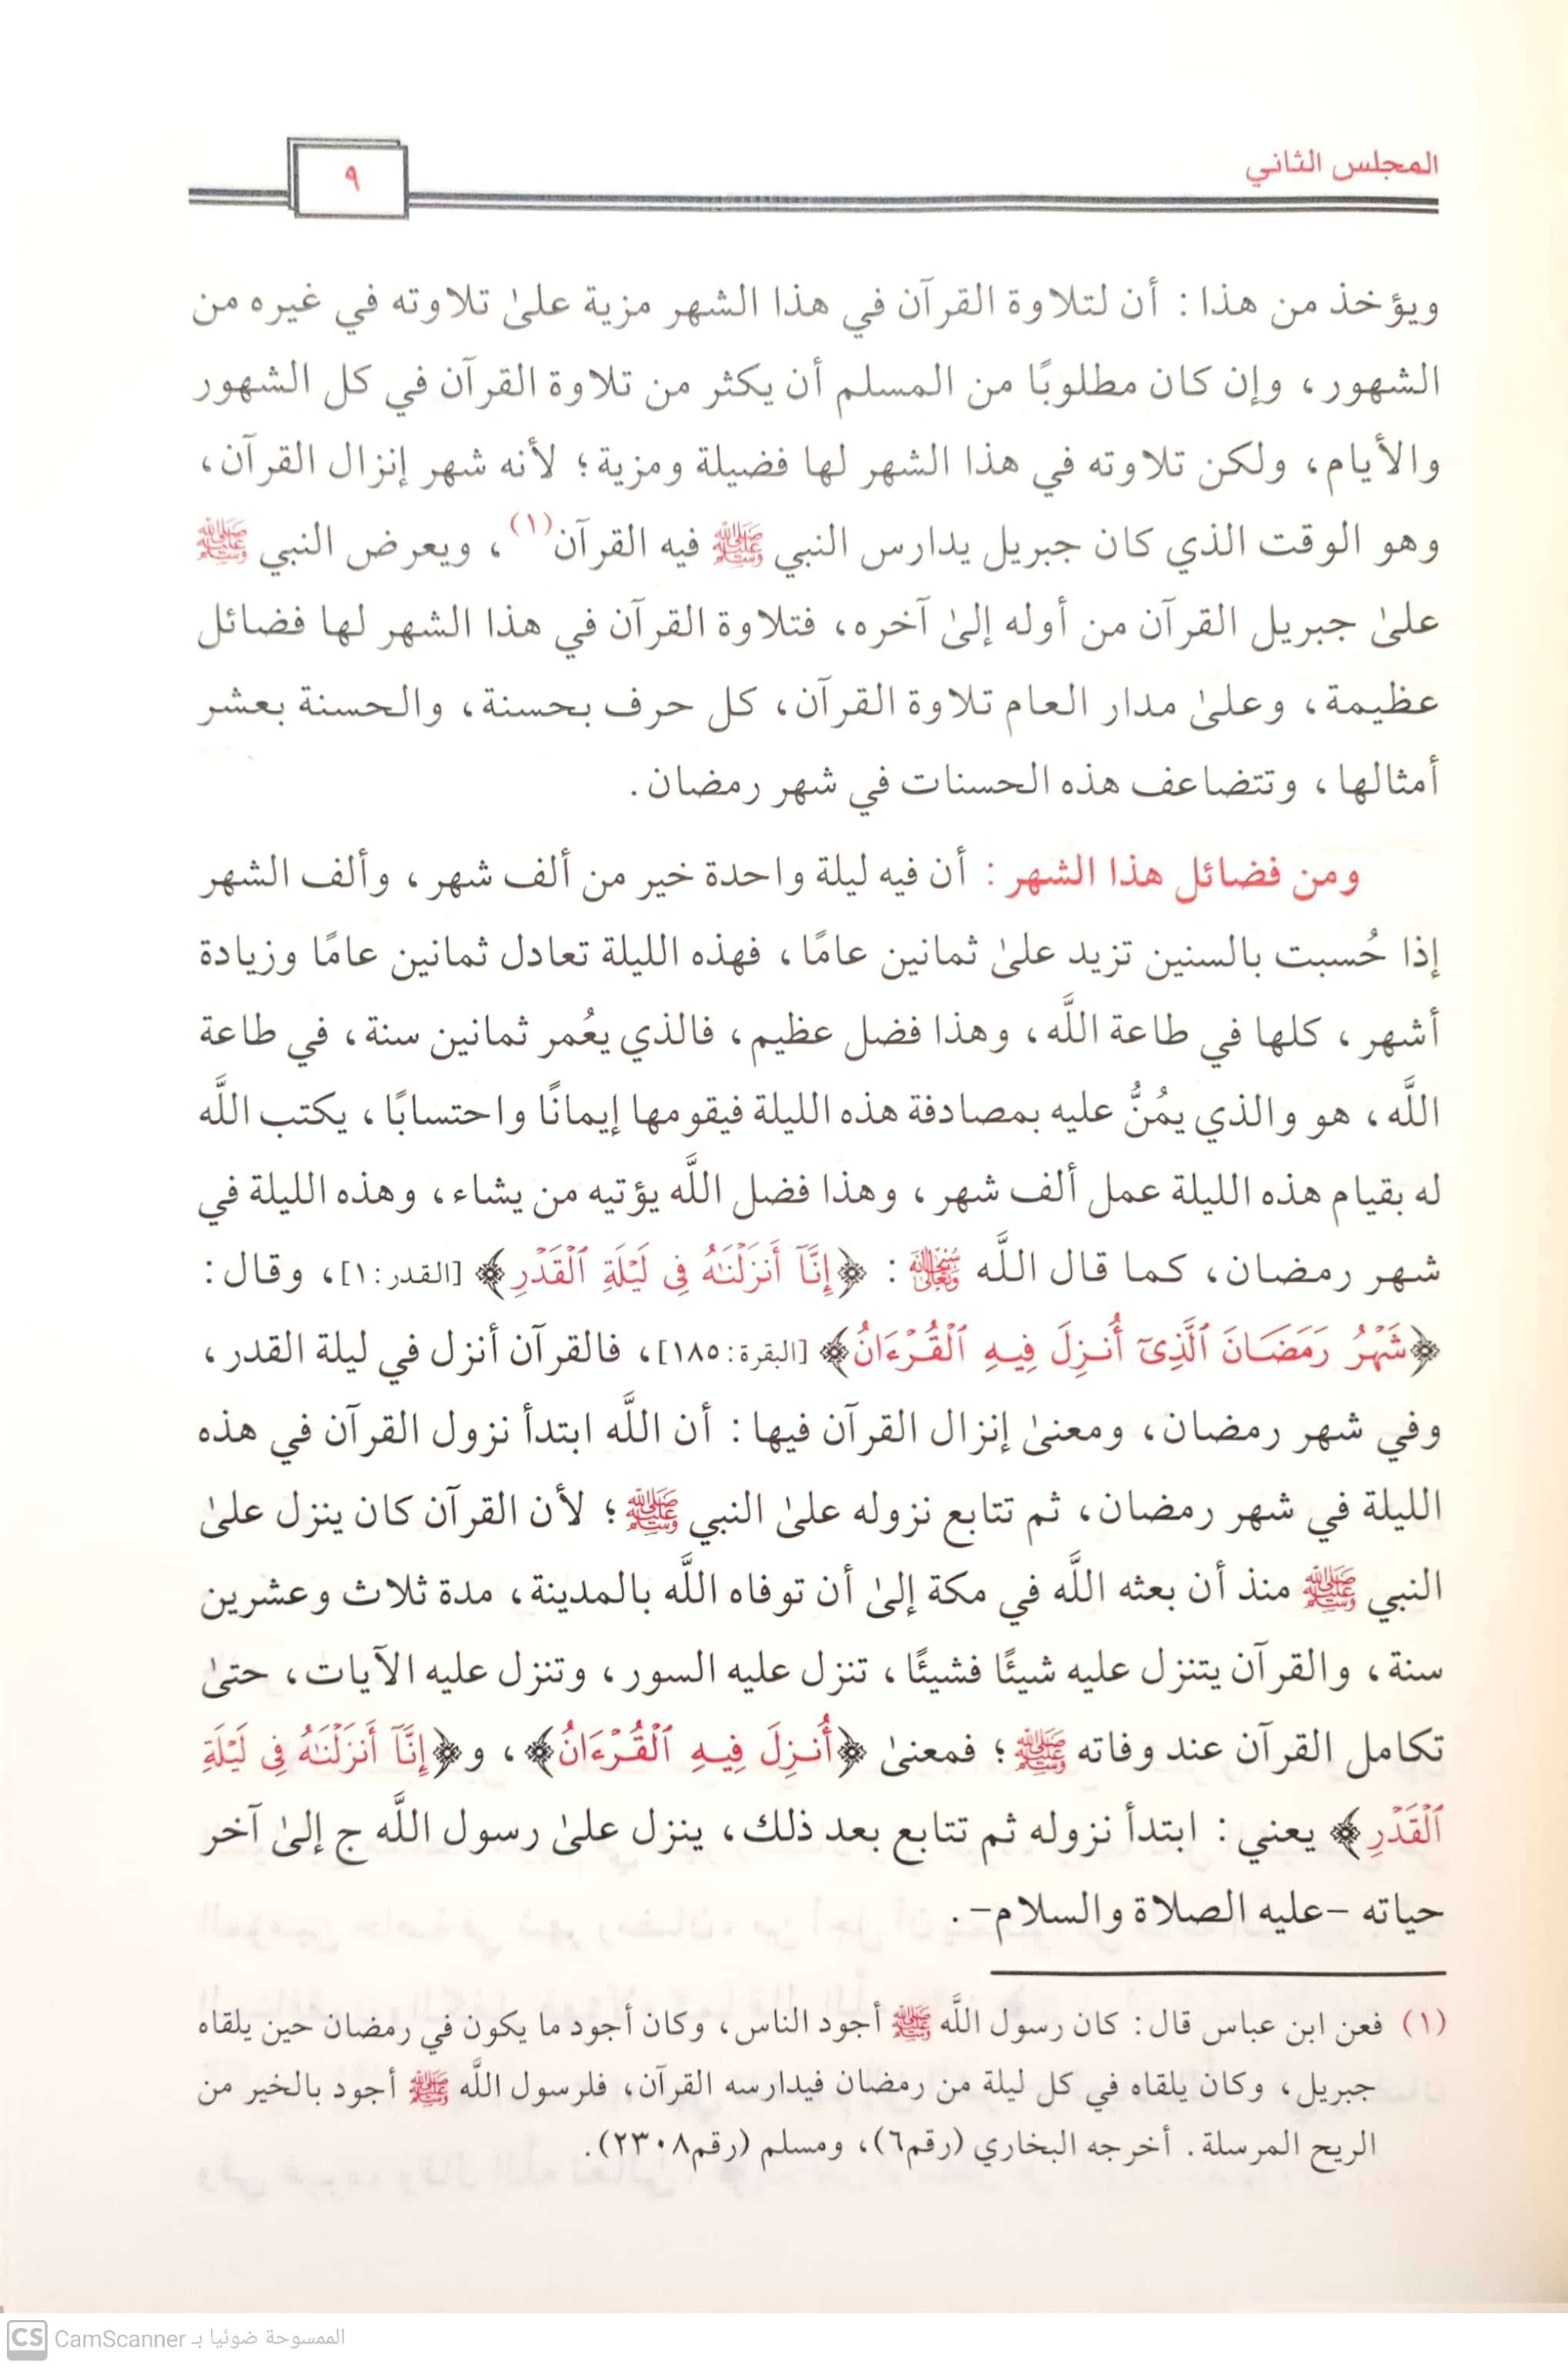 المجلس الثاني
٩
ويؤخذ من هذا: أن لتلاوة القرآن في هذا الشهر مزية علىٰ تلاوته في غيره من
الشهور، وإن كان مطلوبًا من المسلم أن يكثر من تلاوة القرآن في كل الشهور
والأيام، ولكن تلاوته في هذا الشهر لها فضيلة ومزية؛ لأنه شهر إنزال القرآن،
وهو الوقت الذي كان جبريل يدارس النبي ﷺ فيه القرآن(١)، ويعرض النبي ﷺ
علىٰ جبريل القرآن من أوله إلىٰ آخره، فتلاوة القرآن في هذا الشهر لها فضائل
عظيمة، وعلىٰ مدار العام تلاوة القرآن، كل حرف بحسنة، والحسنة بعشر
أمثالها، وتتضاعف هذه الحسنات في شهر رمضان.
ومن فضائل هذا الشهر: أن فيه ليلة واحدة خير من ألف شهر، وألف الشهر
إذا حُسبت بالسنين تزيد علىٰ ثمانين عامًا، فهذه الليلة تعادل ثمانين عامًا وزيادة
أشهر، كلها في طاعة اللَّه، وهذا فضل عظيم، فالذي يعُمر ثمانين سنة، في طاعة
اللَّه، هو والذي يمُنُّ عليه بمصادفة هذه الليلة فيقومها إيمانًا واحتسابًا، يكتب اللَّه
له بقيام هذه الليلة عمل ألف شهر، وهذا فضل اللَّه يؤتيه من يشاء، وهذه الليلة في
شهر رمضان، كما قال اللَّه سُبْحَانَهُ وَتَعَالَىٰ: ﴿إِنَّآ أَنزَلْنَٰهُ فِى لَيْلَةِ ٱلْقَدْرِ﴾ [القدر:١]، وقال:
﴿شَهْرُ رَمَضَانَ ٱلَّذِىٓ أُنزِلَ فِيهِ ٱلْقُرْءَانُ﴾ [البقرة:١٨٥]، فالقرآن أنزل في ليلة القدر،
وفي شهر رمضان، ومعنىٰ إنزال القرآن فيها: أن اللَّه ابتدأ نزول القرآن في هذه
الليلة في شهر رمضان، ثم تتابع نزوله علىٰ النبي ﷺ؛ لأن القرآن كان ينزل علىٰ
النبي ﷺ منذ أن بعثه اللَّه في مكة إلىٰ أن توفاه اللَّه بالمدينة، مدة ثلاث وعشرين
سنة، والقرآن يتنزل عليه شيئًا فشيئًا، تنزل عليه السور، وتنزل عليه الآيات، حتىٰ
تكامل القرآن عند وفاته ﷺ؛ فمعنىٰ ﴿أُنزِلَ فِيهِ ٱلْقُرْءَانُ﴾، و﴿إِنَّآ أَنزَلْنَٰهُ فِى لَيْلَةِ
ٱلْقَدْرِ﴾ يعني: ابتدأ نزوله ثم تتابع بعد ذلك، ينزل علىٰ رسول اللَّه ج إلىٰ آخر
حياته -عليه الصلاة والسلام-.
(١) فعن ابن عباس قال: كان رسول اللَّه ﷺ أجود الناس، وكان أجود ما يكون في رمضان حين يلقاه
جبريل، وكان يلقاه في كل ليلة من رمضان فيدارسه القرآن، فلرسول اللَّه ﷺ أجود بالخير من
الريح المرسلة. أخرجه البخاري (رقم٦)، ومسلم (رقم٢٣٠٨).
CS CamScanner الممسوحة ضوئيا بـ